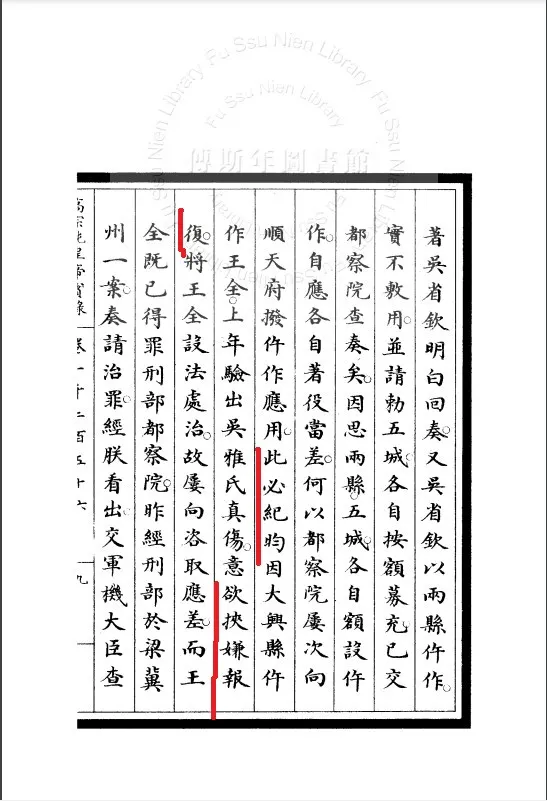 Fu Ssu Nien Library
Fu Ssu Nien Library
傅斯年圖書館
著吳省欽明白回奏。又吳省欽以兩縣仵作。
實不敷用。並請勅五城。各自按額募充。已交
都察院查奏矣。因思兩縣。五城。各自額設仵
作。自應各自著役當差。何以都察院屢次向
順天府撥仵作應用。此必紀昀因大興縣仵
作王全。上年驗出吳雅氏真傷。意欲挾嫌報
復。將王全設法處治。故屢向咨取應差。而王
全既已得罪刑部都察院。昨經刑部於梁冀
州一案。奏請治罪。經朕看出。交軍機大臣查
高宗純皇帝實錄
卷一千二百五十六
九